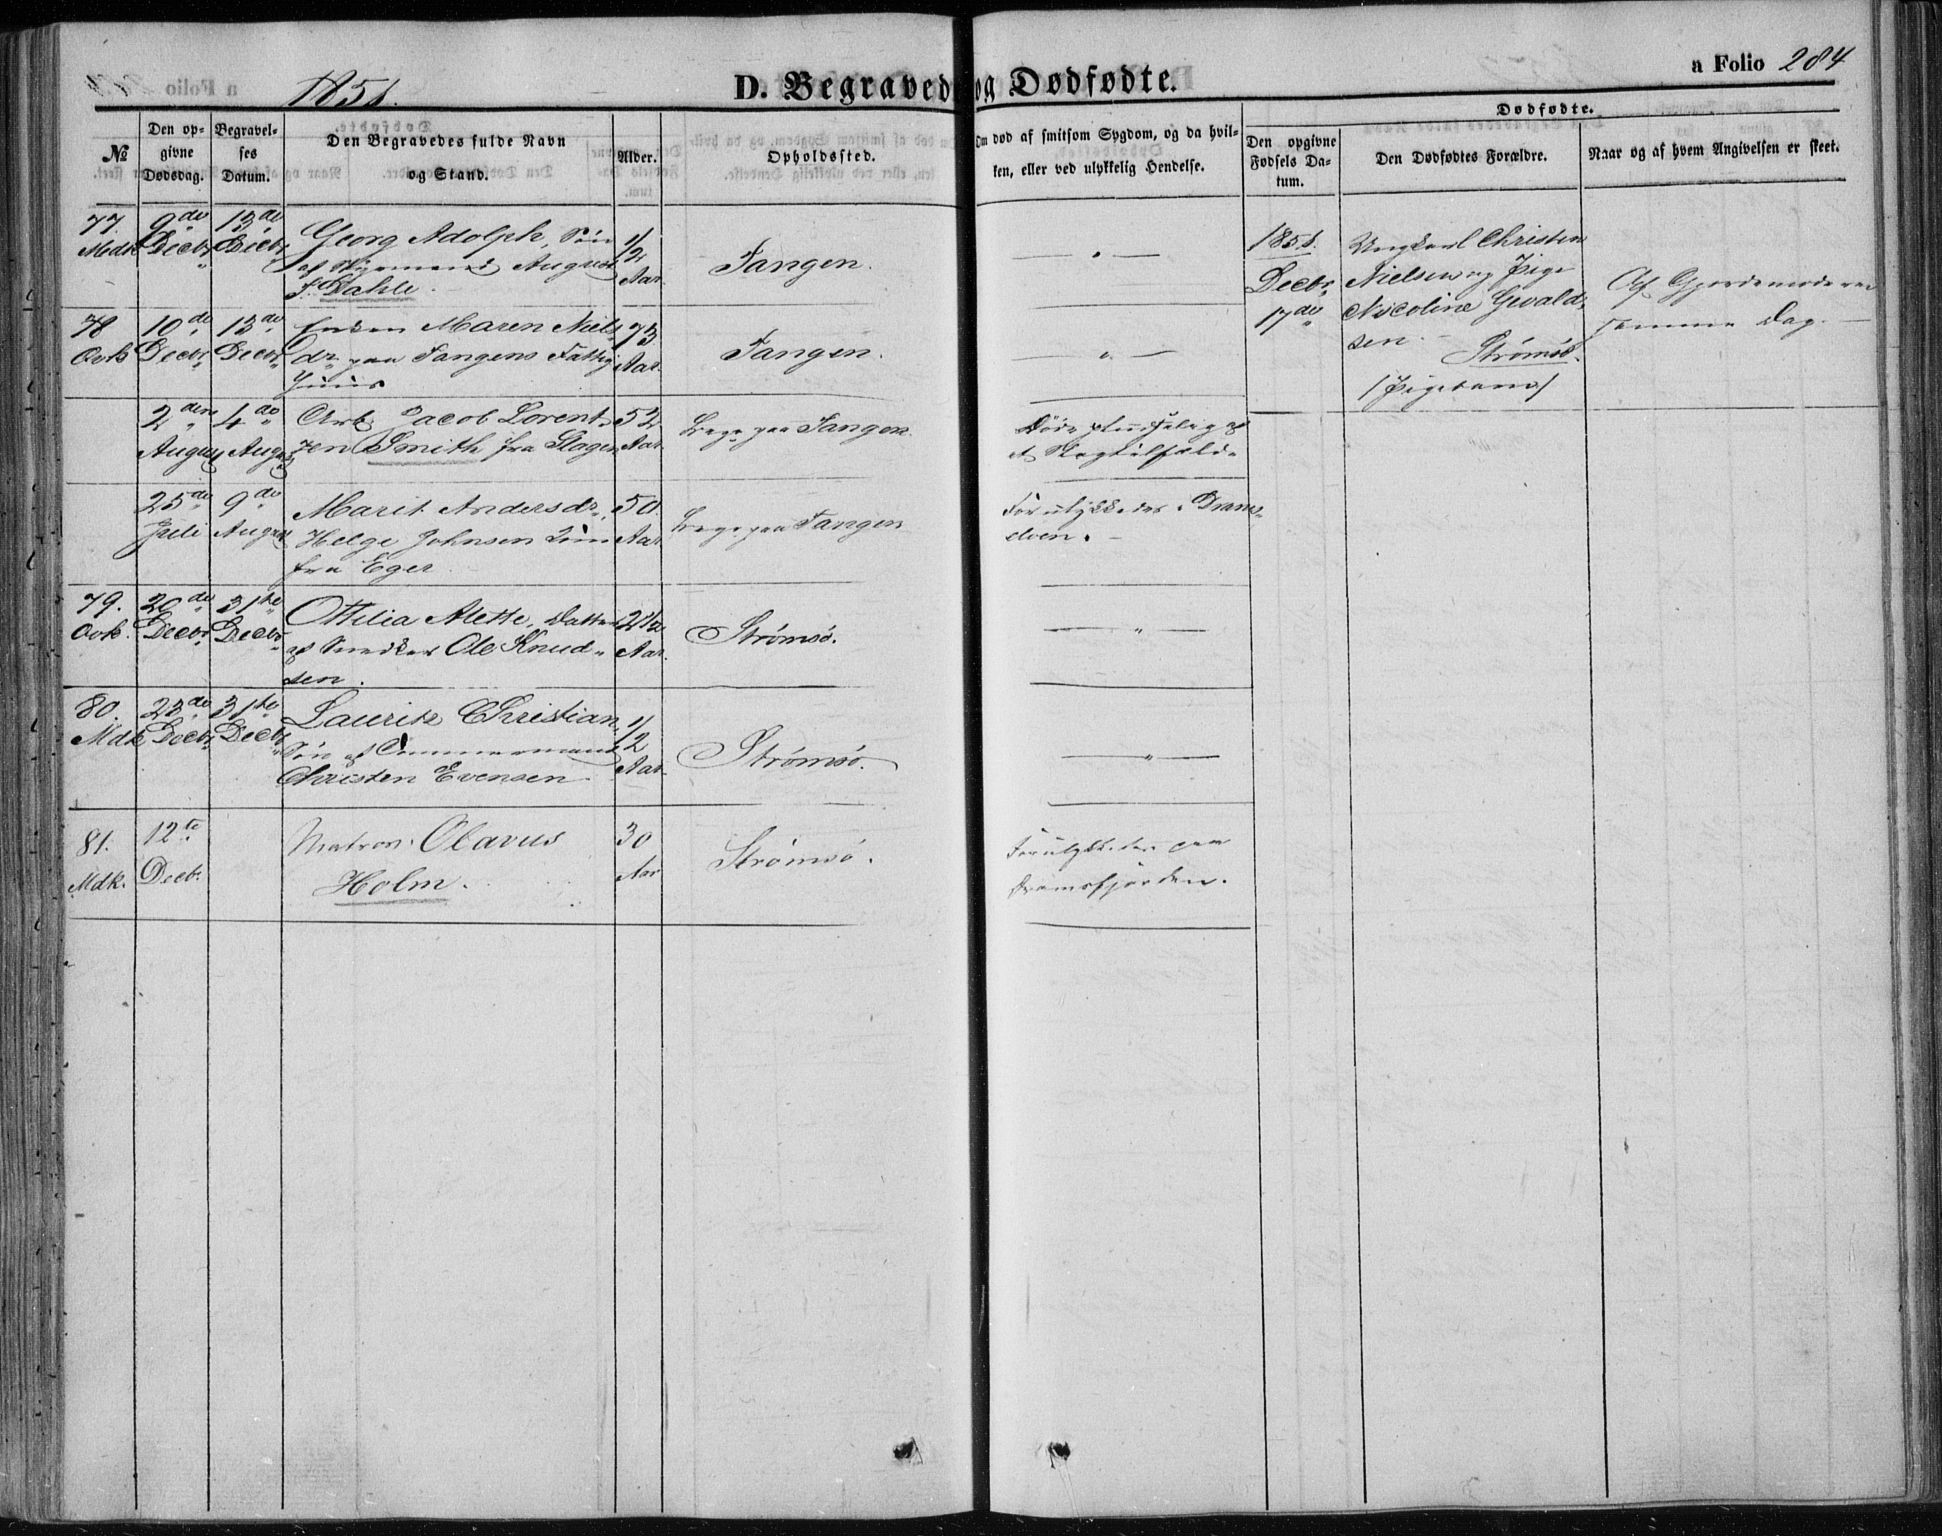 1851.
D. Begravede og Dødfødte.
a Folio 284
Dødfødte.
№
Den opgivne Dødsdag.
Begravelses Datum.
Den Begravedes fulde Navn og Stand.
Alder.
Opholdssted.
Om død af smitsom Sygdom, og da hvilken, eller ved ulykkelig Hendelse.
Den opgivne Fødsels Datum.
Den Dødfødtes Forældre.
Naar og af hvem Angivelsen er skeet.
77. Mdk
9de Decbr
13de Decbr
Georg Adolph, Søn
af Styrmand August
F. Dahle.
1/2 Aar.
Tangen.
— " —
78 Qvk
10de Decbr
13de Decbr
Enken Maren Niels
dr. paa Tangens Fattig
Huus
73 Aar.
Tangen.
— " —
2den August
4de August
Arb. Jacob Lorent
zen Smith fra Slagen
52 Aar.
paa Tangen.
Døde pludselig af
et Slagtilfælde
25de Juli
9de August
Marit Andersdr.
Helge Johnsen
fra Eger
50 Aar.
paa Tangen
Forulykkedes i Drams-
elven.
79. Qvk.
20de Decbr
31te Decbr
Ottilia Alette, Datter
af Snedker Ole Knud-
sen.
2 1/2 Aar.
Strømsø.
— " —
80. Mdk
23de Decbr
31te Decbr
Lauritz Christian
Søn af Tømmermand
Christen Evensen
1/2 Aar.
Strømsø.
— " —
81. Mdk.
12te Decbr.
Matros Olavus
Holm.
30 Aar
Strømsø.
Forulykkedes paa
Dramsfjorden.
1851.
Decbr
17de
Ungkarl Christen
Nielsen og Pige
Nicoline Gevald-
sen.
Strømsø.
/Pigebarn/
Af Gjordemoderen
samme Dag. —